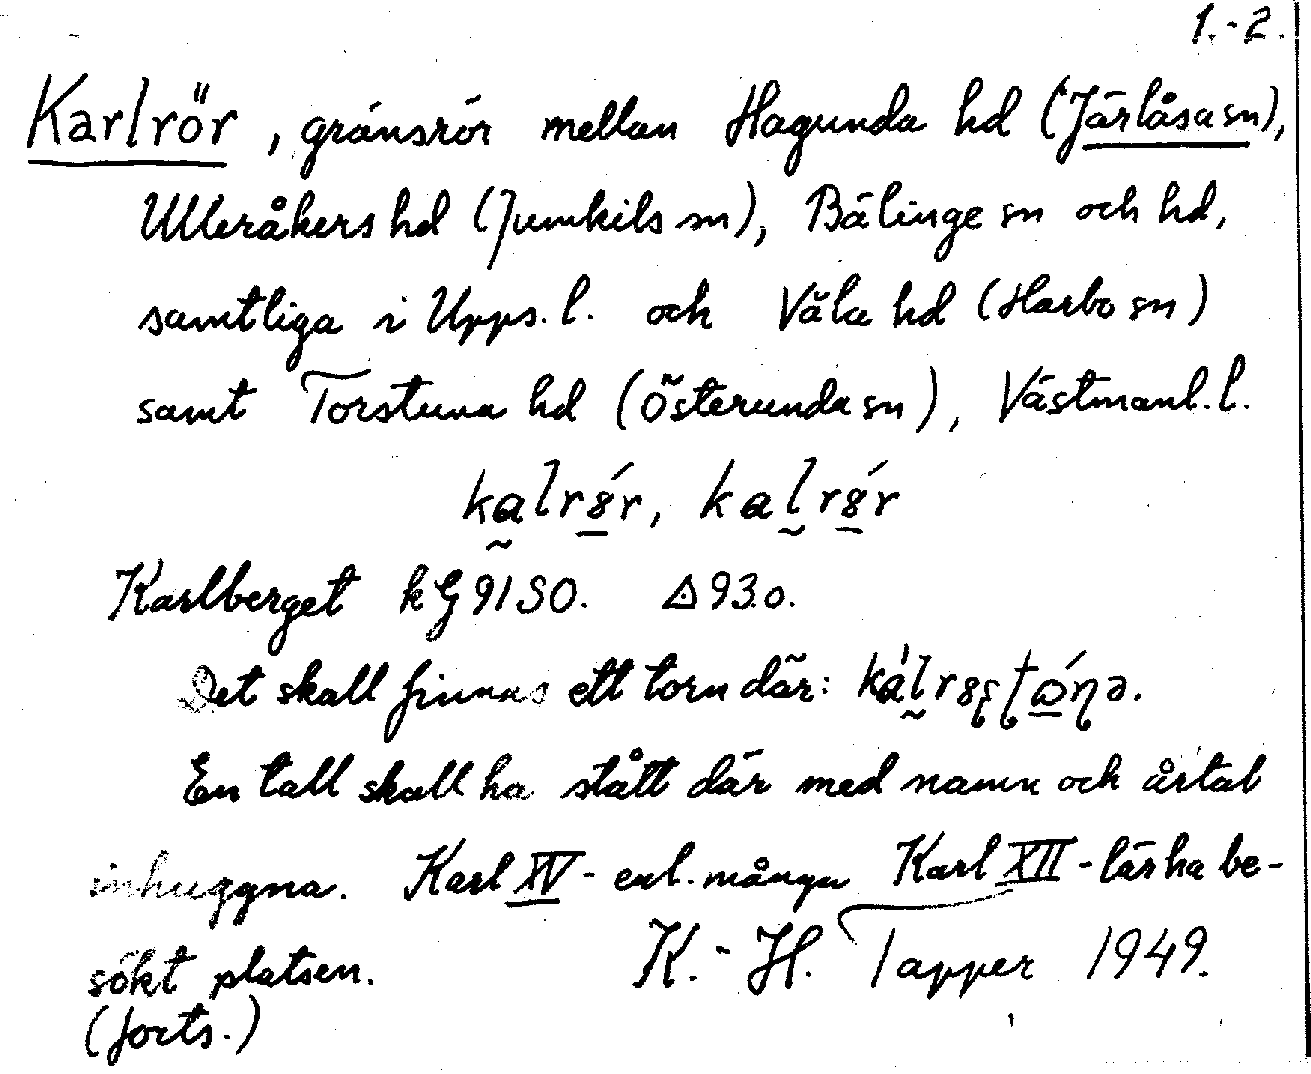 1.-2.
Karlrör, gränsrör mellan Hagunda hd (Järlåsa sn),
Ulleråkers hd (Jumkils sn), Bälinge sn och hd,
samtliga i Upps. l. och Våla hd (Harbo sn)
samt Torstuna hd (Österunda sn), Västmanl. l.
Karlberget k G 9150. Δ 93.0.
Det skall finnas ett torn där:
En tall skall ha stått där med namn och årtal
inhuggna. Karl XV - enl. många Karl XII - lär ha be-
sökt platsen. K.-H. Tapper 1949.
(forts.)